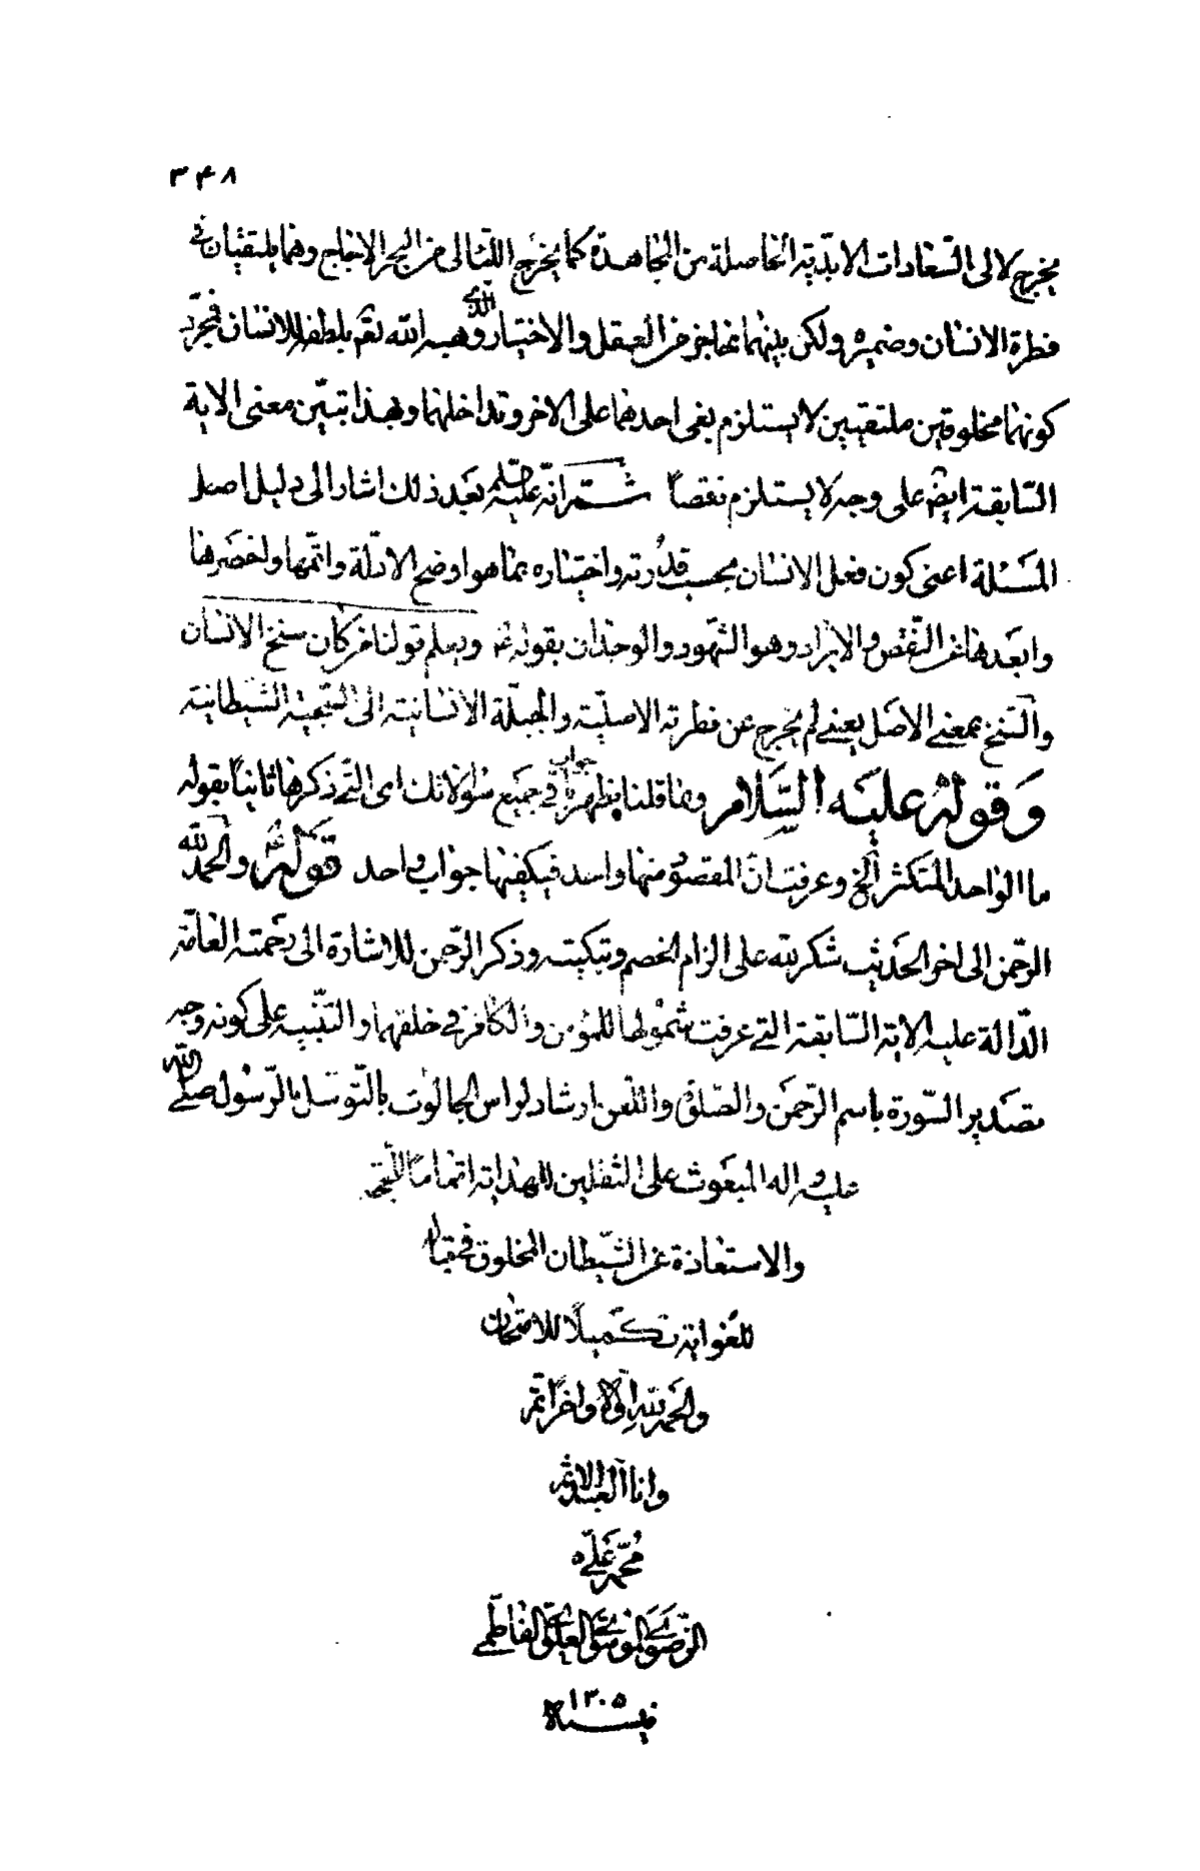 ۳۴۸
يخرج لالى السّعادات الابدّية الحاصلة من المجاهدة كما يخرج اللئالى من البحر الاجاج وهما يلتقيان فى
فطرة الانسان وضميره ولكن بينهما حاجز من العقل والاختيار الذى وهبه الله تعم بلطفه للانسان فمجرّد
كونهما مخلوقين ملتقيين لا يستلزم بغى احدهما على الاخر وتداخلهما وبهذا تبيّن معنى الاية
السّابقة ايضم على وجه لا يستلزم نقصاً ثمّ انّه عليه بعد ذلك اشار الى دليل اصل
المسئلة اعنى كون فعل الانسان بحسب قدرته واختياره بما هو اوضح الادلّة واتمّها واخصرها
وابعدها عن النّقض والايراد وهو الشّهود والوجدان بقوله عم ويعلم قولنا من كان سنخ الانسان
والسّنخ بمعنى الاصل يعنى لم يخرج عن فطرته الاصليّة والجبلّة الانسانيّة الى الشيطانيّة
وقوله عليه السّلام وما قلنا يظهر جواب فى جميع سؤالاتك اى الّتى ذكرها ثانياً بقوله
ما الواحد المتكثر الخ وعرفت انّ المقصود منها واحد فيكفيها جواب واحد قوله عم والحمد لله
الرّحمن الى اخر الحديث شكر لله على الزام الخصم وتبكيته وذكر الرّحمن للاشارة الى رحمته العامّة
الدّالة عليه الاية السّابقة الّتى عرفت شمولها للمؤمن والكافر فى خلقهما والتّنبيه على كونه وجه
تصدير السّورة باسم الرّحمن والصّلوة واللّعن ارشاد لراس الجالوت بالتّوسّل بالرّسول صلّى الله
عليه واله المبعوث على الثقلين للهداية اتماما للحجّة
والاستعاذة عن الشّيطان المخلوق فى قبال
للغواية تكميلاً للامتحان
والحمد لله اوّلا واخراً تمّ
وانا العبد الاثم
محمّد علىّ
الرّضوىّ الموسوىّ العلوىّ الفاطمىّ
فى سنة ۱۳۰۵